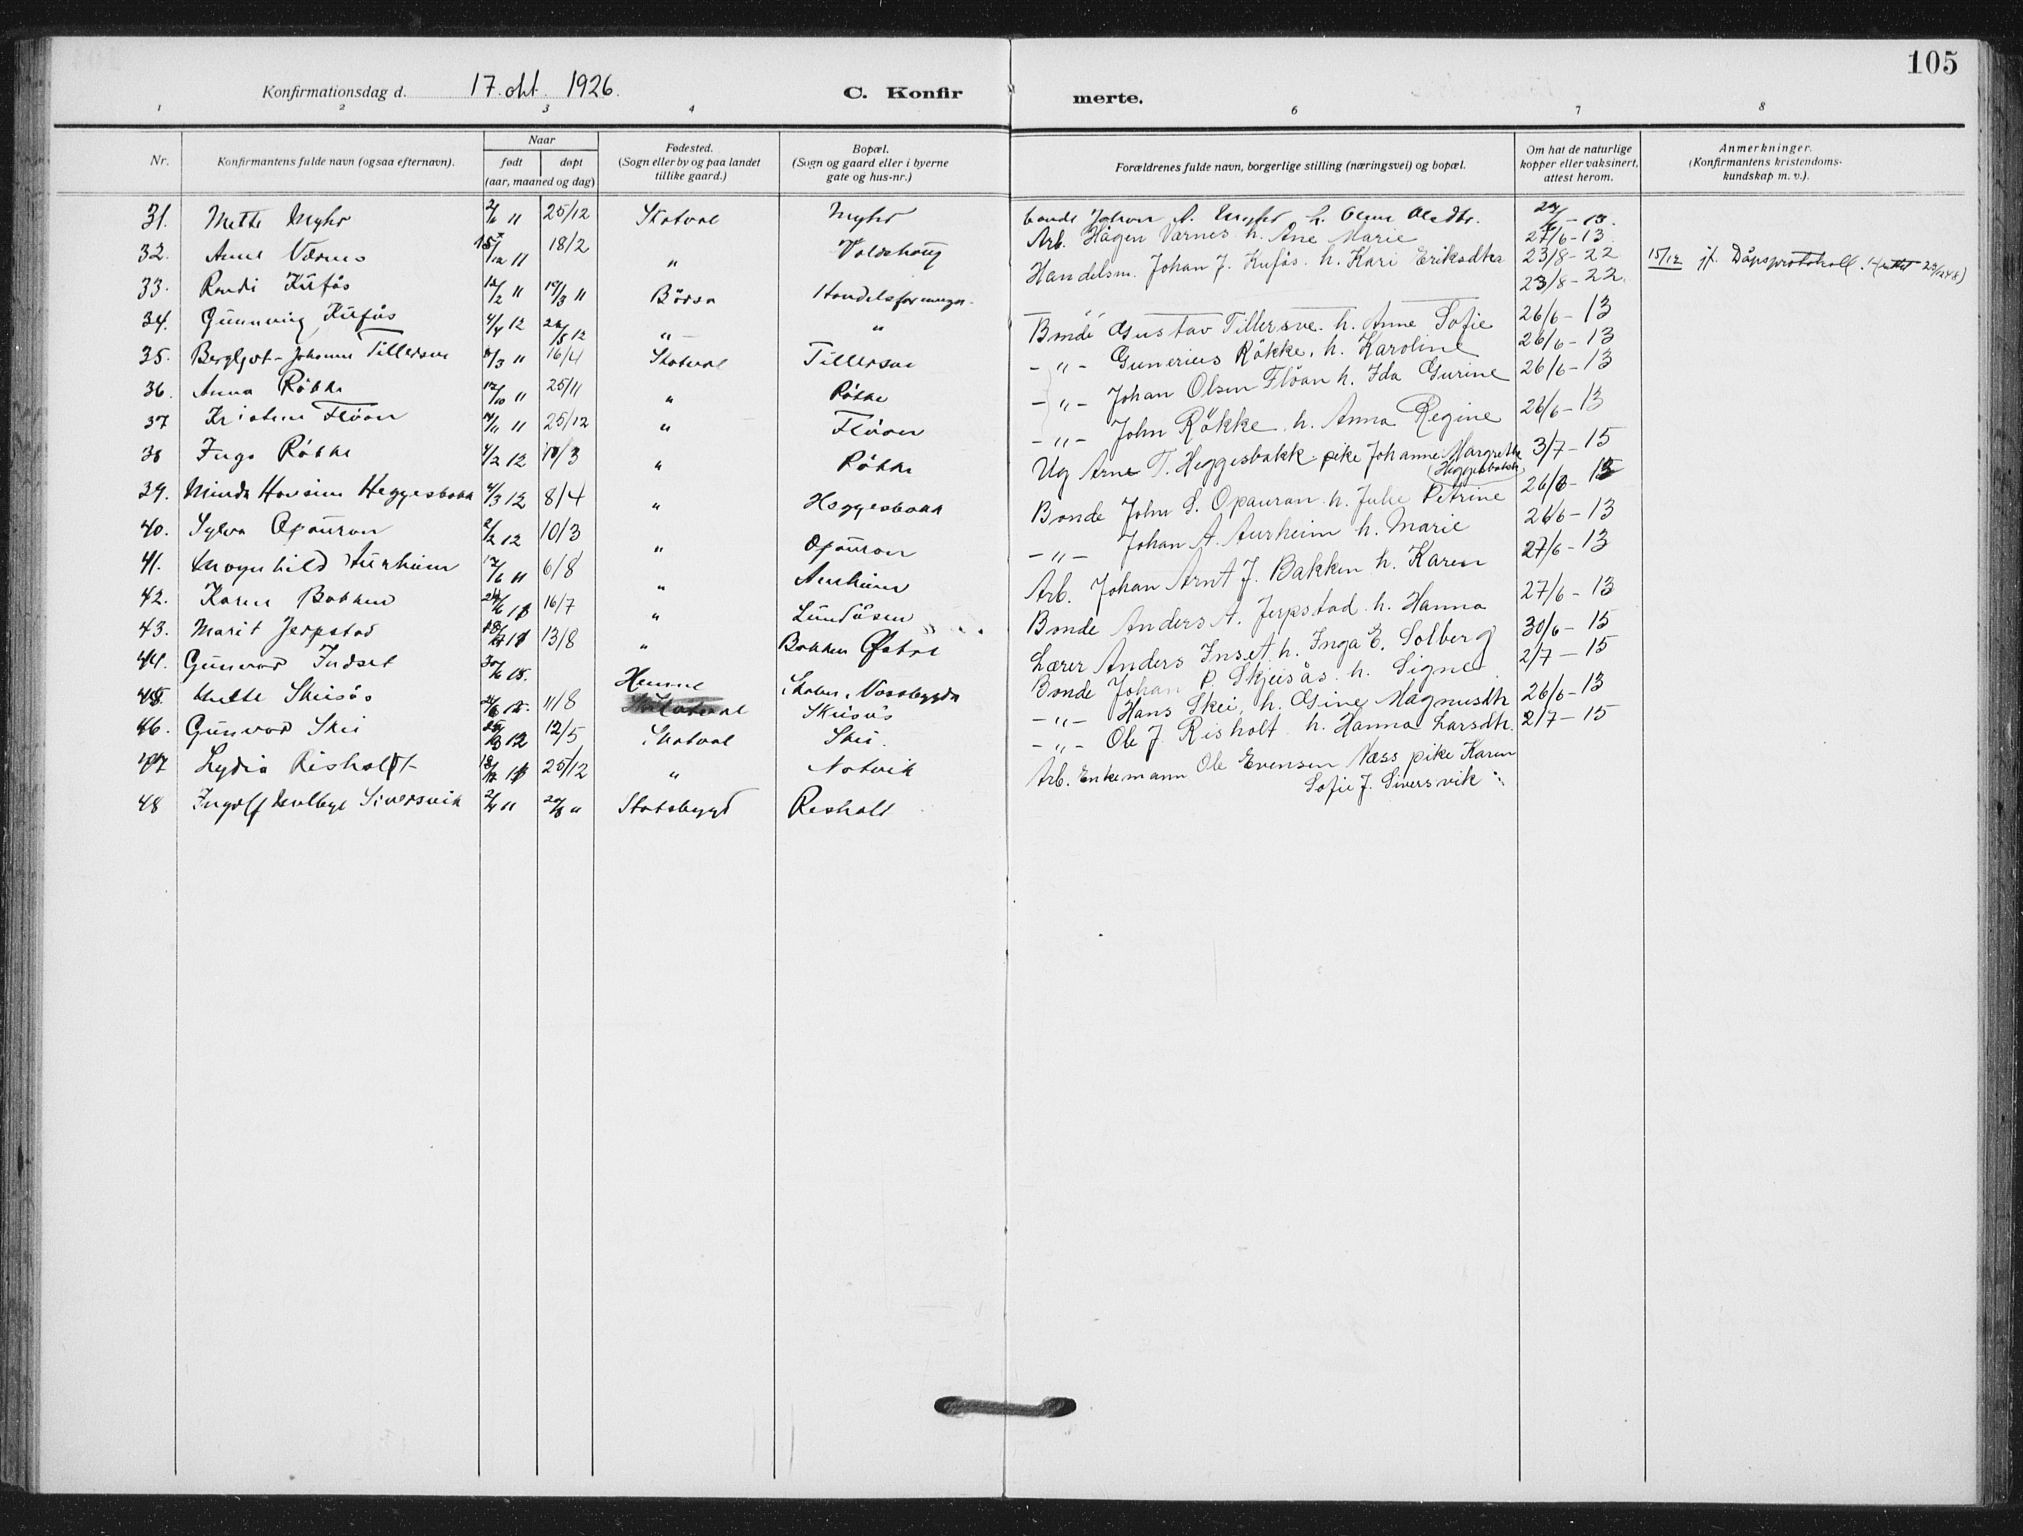 105
Konfirmationsdag d. 17. okt. 1926.
C. Konfir merte.
1 2 3 4 6 7 8
Nr.
Konfirmantens fulde navn (ogsaa efternavn).
Naar
født døpt
(aar, maaned og dag)
Fødested.
(Sogn eller by og paa landet
tillike gaard.)
Bopæl.
(Sogn og gaard eller i byerne
gate og hus-nr.)
Forældrenes fulde navn, borgerlige stilling (næringsvei) og bopæl.
Om hat de naturlige
kopper eller vaksinert,
attest herom.
Anmerkninger.
(Konfirmantens kristendoms-
kundskap m. v.).
31. Mette Myhr 2/6 11 25/12 Skatval Myhr
32. Anne Værnes 15/12 11 18/2 „ Valdshaug
33. Randi Kufås 12/2 11 19/3 11 Börsa Handelsforeningen
34. Gunnvig Kufås 4/4 12 26/5 12 „ „
35. Bergljot Johanne Tillersve 11/3 11 16/4 Skatval Tillersve
36. Anna Rökke 12/10 11 25/11 „ Rökke
37 Kristine Flöan 4/11 11 25/12 „ Flöan
38 Inga Rökke 4/2 12 10/3 „ Rökke
39. Minda Hansine Heggesbakk 4/3 12 8/4 „ Heggesbakk
40. Sylva Opauran 2/2 12 10/3 „ Opauran
41. Magnhild Aurheim 12/6 11 6/8 „ Aurheim
42. Karen Bakken 16/7 „ Lundåsen
43. Marit Jerpstad 13/8 „ Bakken Östre
44. Gunvor Indset 30/6 Hemne Skolen, Vassbygda
45. Mette Skeisås 11/8 Skatval Skeisås
46. Gunvor Skei 12/5 Skatval Skei.
47 Lydia Risholt 25/12 „ Natvik
48 Ingolf Siversvik 2/4 11 20/8 „ Statsbygd Risholt
bonde Johan A. Myhr h. Olsdtr. 13.
Arb. Hågen Værnes h. Ane Marie 27/6-13
Handelsm. Johan J. Kufås. h. Kari Eriksdtr 23/8-22 15/12 jf. Dåpsprotokoll.
23/8-22.
Bonde Gustav Tillersve. h. Anne Sofie 26/6-13
-„- Gunerius Rökke. h. Karoline 26/6-13
-„- Johan Olsen Flöan h. Ida Gurine 26/6-13
-„- John Rökke h. Anna Regine 26/6-13
Ug Arne T. Heggesbakk pike Johanne Margrethe 3/7-15
(Heggesbakk)
Bonde John S. Opauran h. Julie Petrine 26/6-15
-„- Johan A. Aurheim h. Marie 26/6-13
Arb. Johan Arnt J. Bakken h. Karen 27/6-13
Bonde Anders A. Jerpstad h. Hanna 27/6-13
Lærer Anders Inset h. Inga E. Solberg 30/6-15
Bonde Johan P. Skjeisås. h. Signe 2/7-15
-„- Hans Skei, h. Gine Magnusdtr 26/6-13
-„- Ole J. Risholt h. Hanna Larsdtr. 2/7-15
Arb. Enkemann Ole Evensen Næss pike Karen
Sofie J. Siversvik